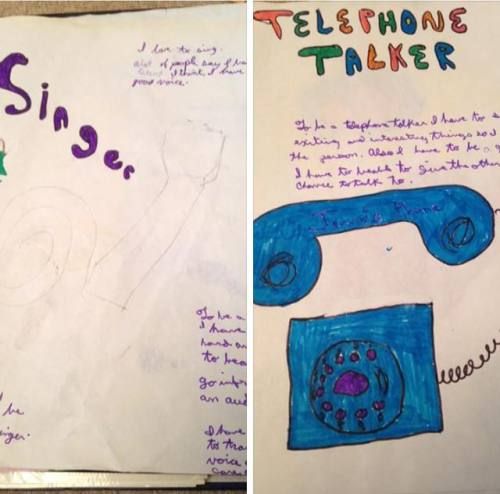 Singer
I love to sing.
alot of people say I ha
I think I have
good voice.
To be a
I have
hard
to
go
an au
I have
to tra
voice
be
nger.
TELEPHONE
TALKER
To be a telephone talker I have to s
exiting and interesting things so
the person. Also I have to be a g
I have to to give the other
chance to talk to.
Phone